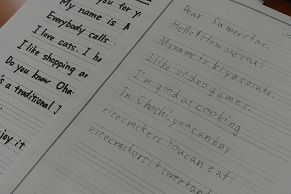 you for yo
My name is A
Everybody calls
I love cats. I ha
I like shopping an
Do you know Oha
s a traditional J
njoy it
Dear Sumerstar.
Hello! How are you?
My name is
I like video games.
I'm good at cooking
In Choshi, you can buy
ricecrackers. You can eat
ricecrackers. it sweet and